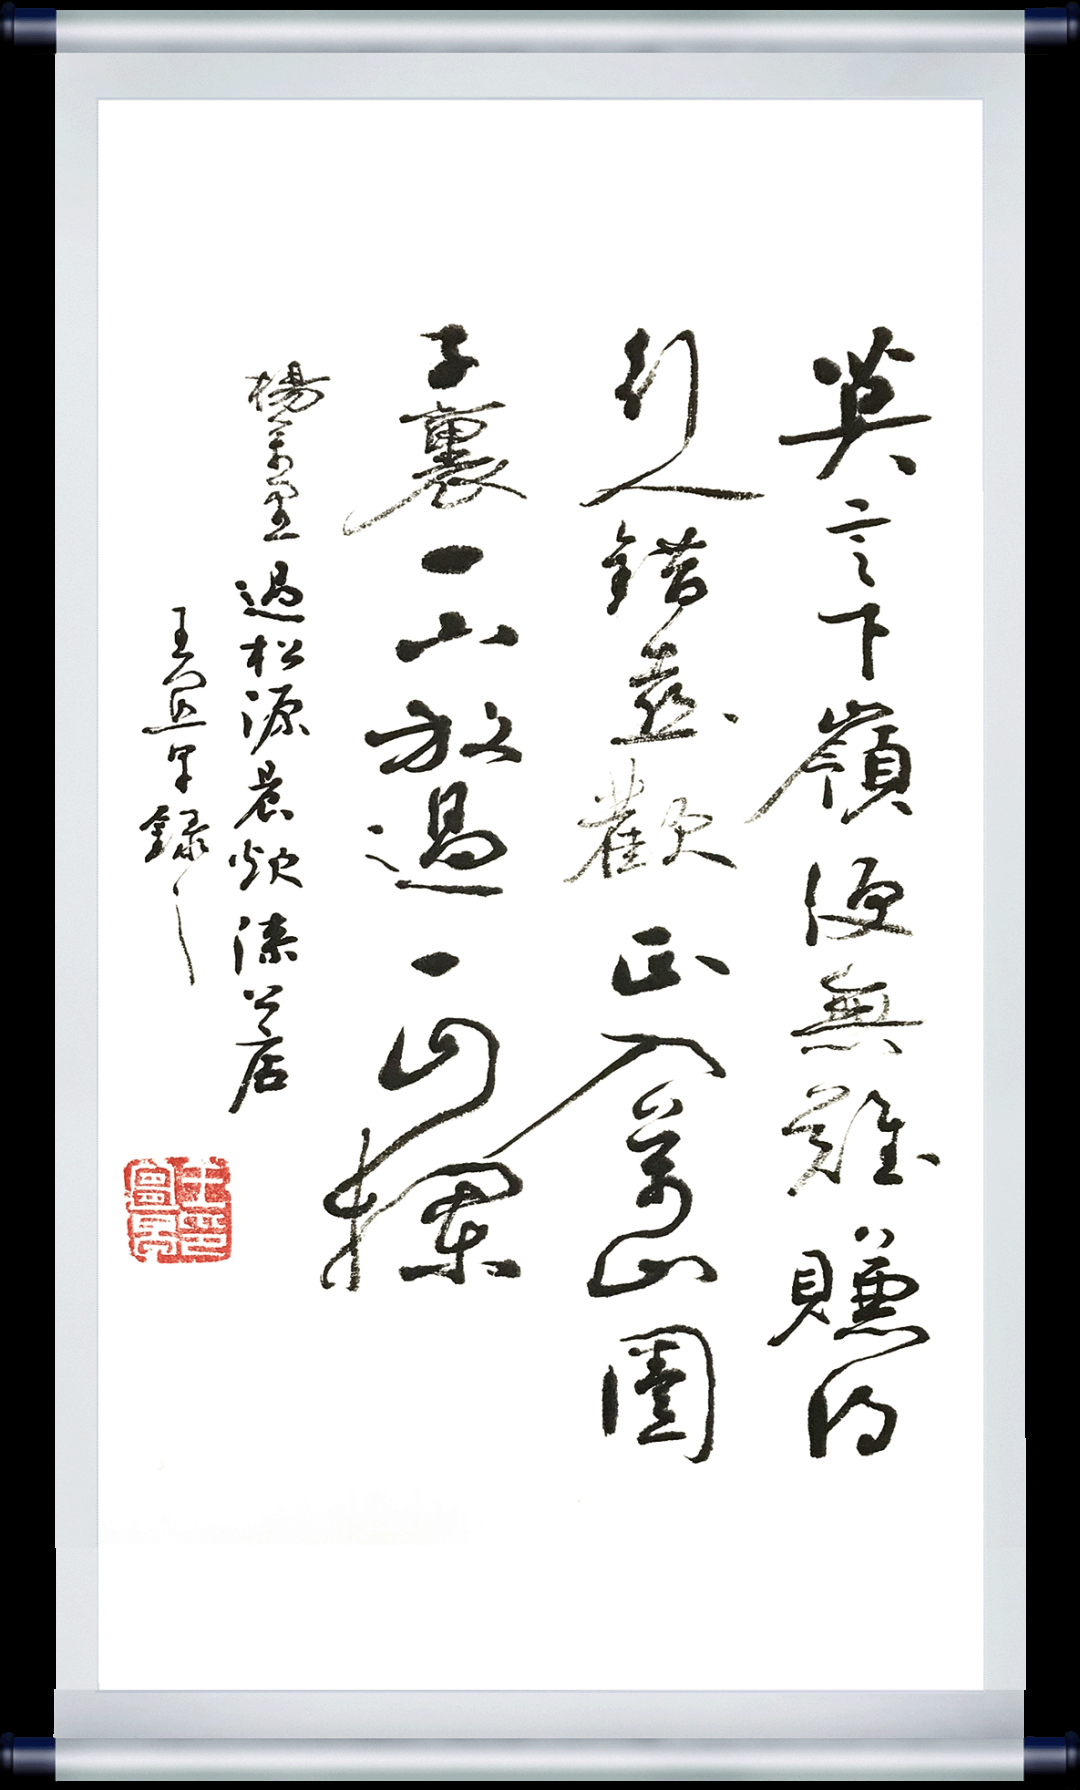 莫言下嶺便無難賺得
行人錯喜歡正入萬山圈
子裏一山放過一山攔
楊萬里過松源晨炊漆公店
王宜早錄之